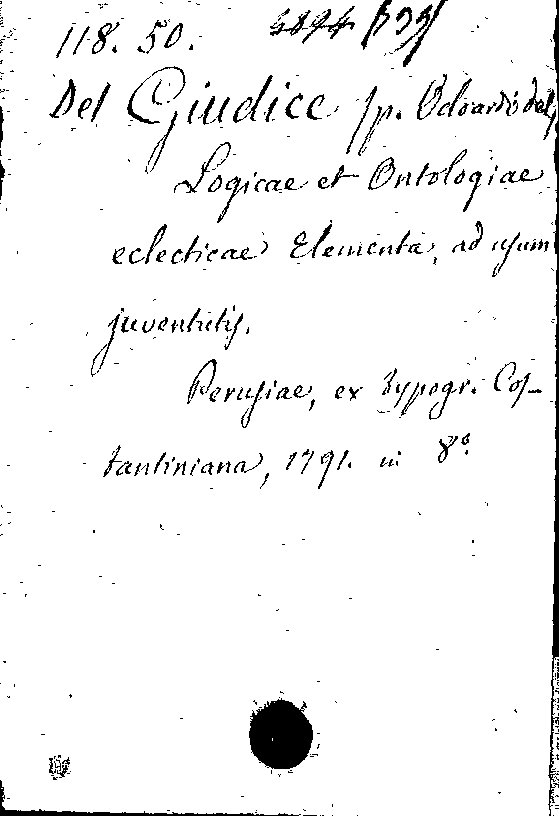 118. 50.
Del Giudice p. Odoardo del,
Logicae et Ontologiae
eclecticae Elementa, ad usum
juventutis.
Perusiae, ex Typogr. Cos-
tantiniana, 1791. in 8º